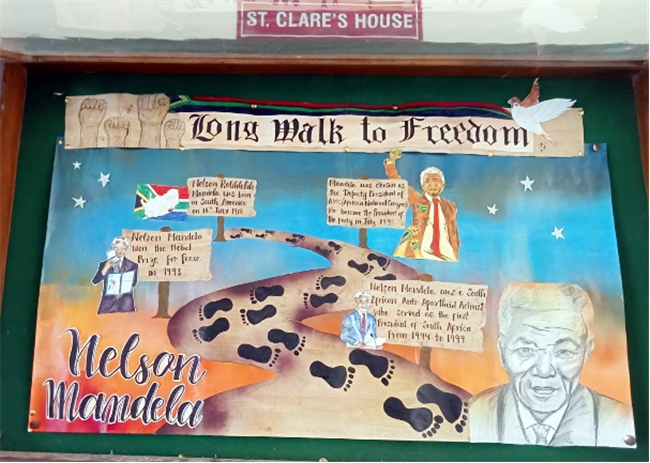 ST. CLARE'S HOUSE
Long Walk to Freedom
Nelson Rolihlahla
Mandela was born in
South America
on 18th July 1918
Mandela was chosen as
the Deputy President of
ANC (African National Congress)
He became the President of
the party in July, 1991.
Nelson Mandela
won the Nobel
Prize for Peace
in 1993
Nelson Mandela was a South
African Anti-Apartheid Activist
who served as the first
President of South Africa
From 1994 to 1999.
Nelson
Mandela